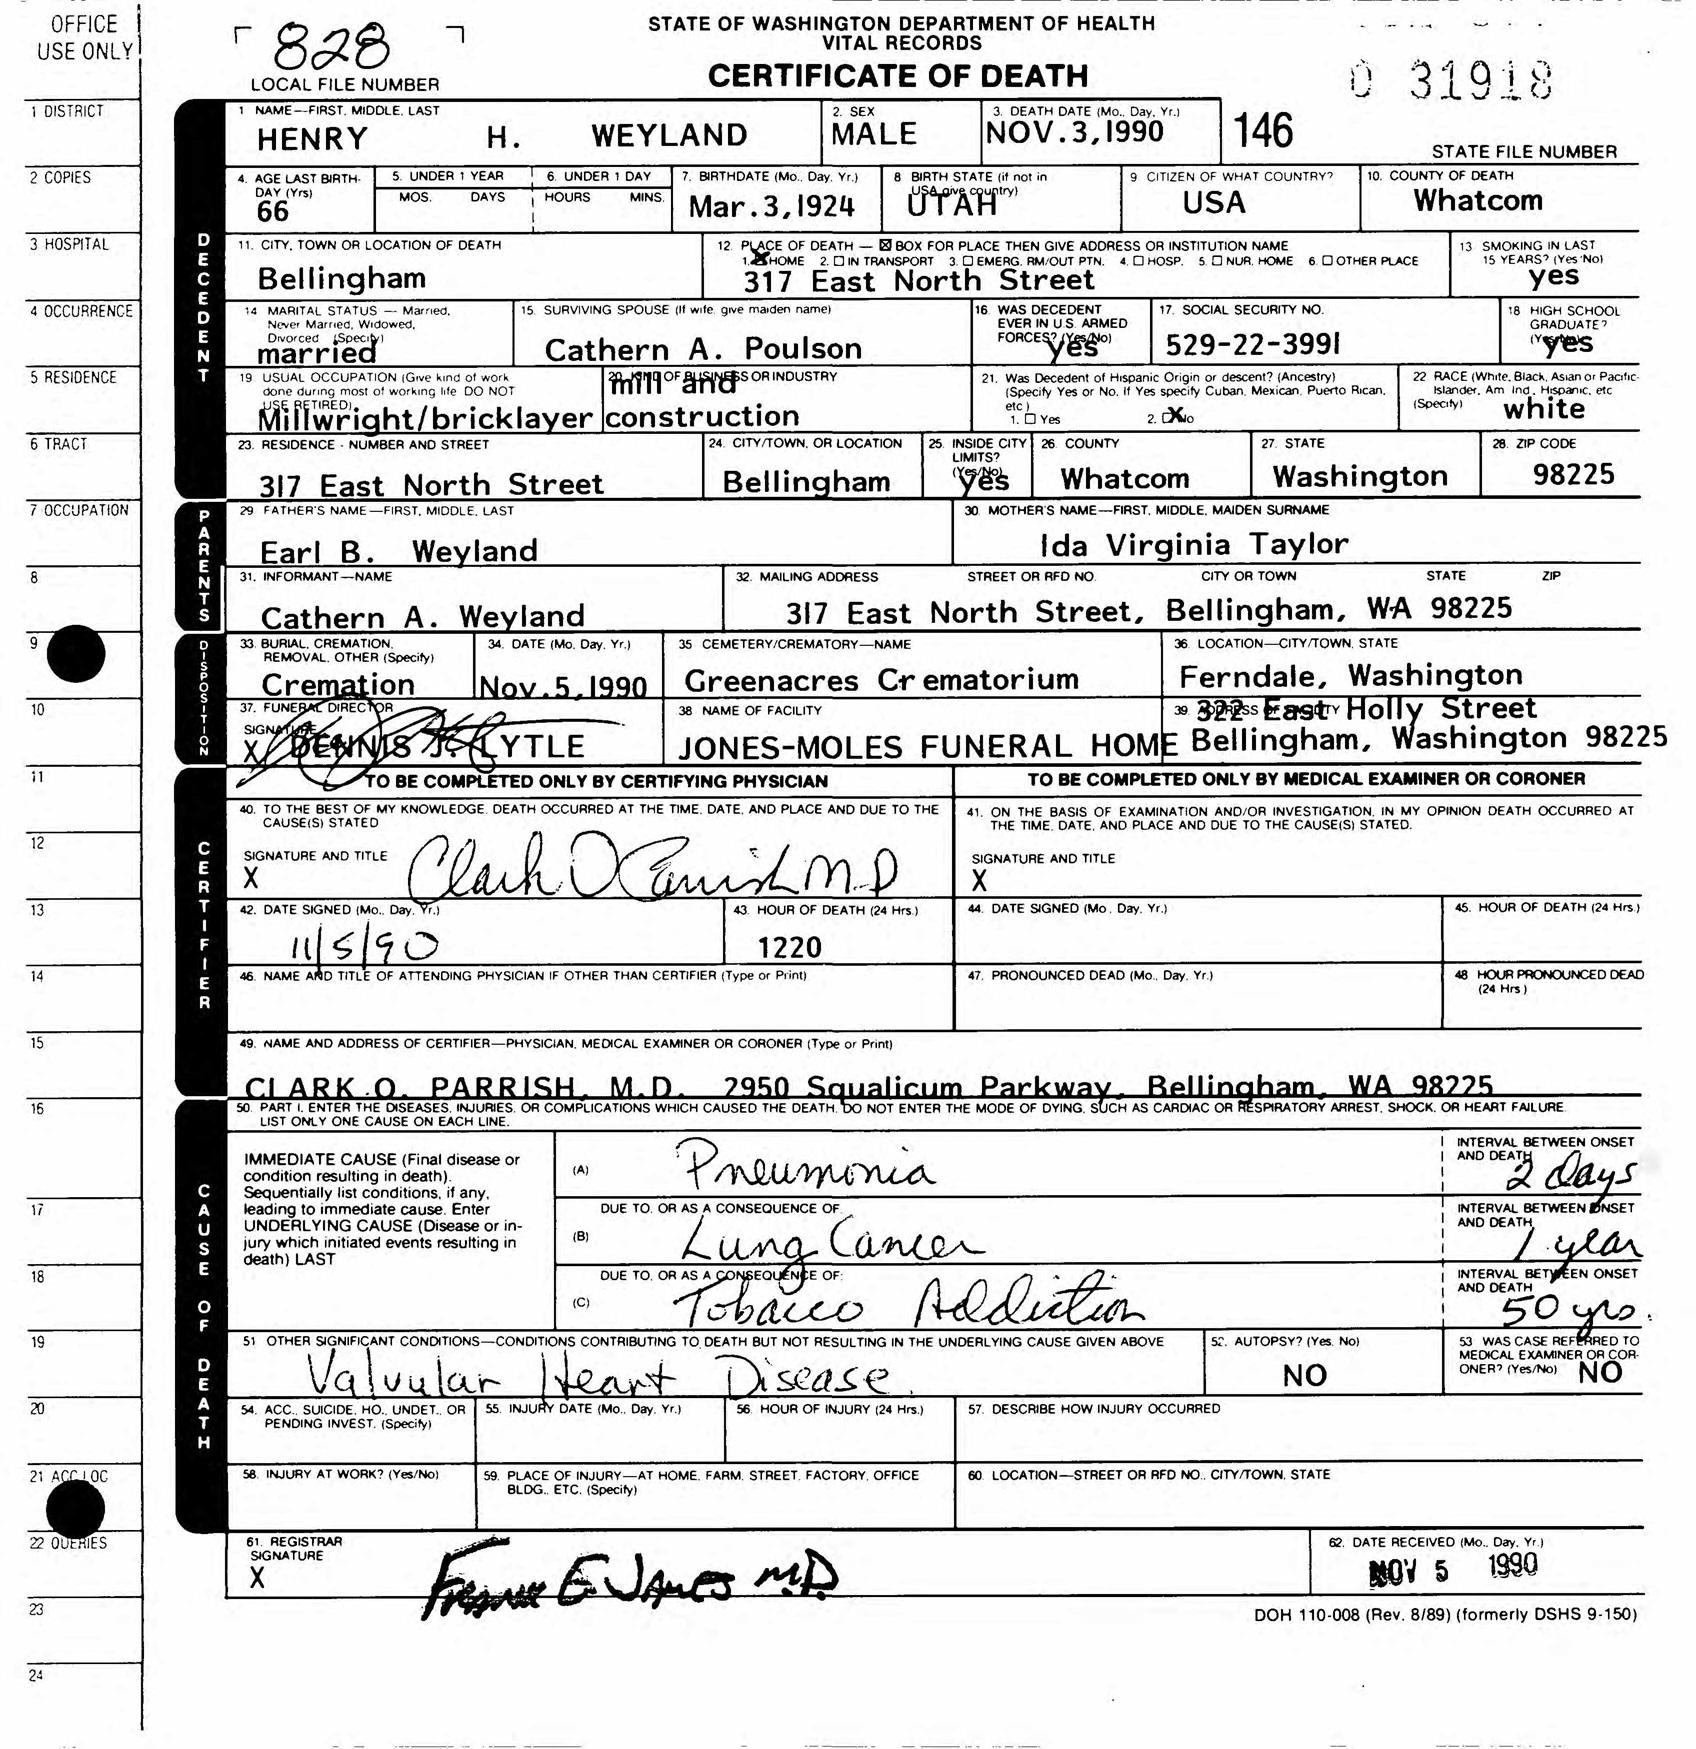 OFFICE
USE ONLY
828
LOCAL FILE NUMBER
STATE OF WASHINGTON DEPARTMENT OF HEALTH
VITAL RECORDS
CERTIFICATE OF DEATH
0 31918
1 DISTRICT
1 NAME—FIRST, MIDDLE, LAST
HENRY H. WEYLAND
2. SEX
MALE
3. DEATH DATE (Mo., Day, Yr.)
NOV.3,1990
146
STATE FILE NUMBER
2 COPIES
DECEDENT
4. AGE LAST BIRTH-
DAY (Yrs)
66
5. UNDER 1 YEAR
MOS. DAYS
6. UNDER 1 DAY
HOURS MINS.
7. BIRTHDATE (Mo., Day, Yr.)
Mar.3,1924
8 BIRTH STATE (if not in
USA give country)
UTAH
9 CITIZEN OF WHAT COUNTRY?
USA
10. COUNTY OF DEATH
Whatcom
3 HOSPITAL
11. CITY, TOWN OR LOCATION OF DEATH
Bellingham
12. PLACE OF DEATH — ☒ BOX FOR PLACE THEN GIVE ADDRESS OR INSTITUTION NAME
1. ☒ HOME 2. ☐ IN TRANSPORT 3. ☐ EMERG. RM/OUT PTN. 4. ☐ HOSP. 5. ☐ NUR. HOME 6. ☐ OTHER PLACE
317 East North Street
13 SMOKING IN LAST
15 YEARS? (Yes/No)
yes
4 OCCURRENCE
14 MARITAL STATUS — Married,
Never Married, Widowed,
Divorced (Specify)
married
15. SURVIVING SPOUSE (If wife, give maiden name)
Cathern A. Poulson
16. WAS DECEDENT
EVER IN U.S. ARMED
FORCES? (Yes/No)
yes
17. SOCIAL SECURITY NO.
529-22-3991
18 HIGH SCHOOL
GRADUATE?
(Yes/No)
yes
5 RESIDENCE
19 USUAL OCCUPATION (Give kind of work
done during most of working life DO NOT
USE RETIRED)
Millwright/bricklayer
20. KIND OF BUSINESS OR INDUSTRY
mill and
construction
21. Was Decedent of Hispanic Origin or descent? (Ancestry)
(Specify Yes or No. If Yes specify Cuban, Mexican, Puerto Rican,
etc.)
1. ☐ Yes 2. ☒ No
22 RACE (White, Black, Asian or Pacific-
Islander, Am. Ind., Hispanic, etc
(Specify)
white
6 TRACT
23. RESIDENCE - NUMBER AND STREET
317 East North Street
24. CITY/TOWN, OR LOCATION
Bellingham
25. INSIDE CITY
LIMITS?
(Yes/No)
yes
26. COUNTY
Whatcom
27. STATE
Washington
28. ZIP CODE
98225
7 OCCUPATION
PARENTS
29 FATHER'S NAME—FIRST, MIDDLE, LAST
Earl B. Weyland
30. MOTHER'S NAME—FIRST, MIDDLE, MAIDEN SURNAME
Ida Virginia Taylor
8
31. INFORMANT—NAME
Cathern A. Weyland
32. MAILING ADDRESS STREET OR RFD NO. CITY OR TOWN STATE ZIP
317 East North Street, Bellingham, WA 98225
9
DISPOSITION
33. BURIAL, CREMATION,
REMOVAL, OTHER (Specify)
Cremation
34. DATE (Mo, Day, Yr.)
Nov.5,1990
35 CEMETERY/CREMATORY—NAME
Greenacres Crematorium
36. LOCATION—CITY/TOWN, STATE
Ferndale, Washington
10
37. FUNERAL DIRECTOR
SIGNATURE
X DENNIS J. LYTLE
38 NAME OF FACILITY
JONES-MOLES FUNERAL HOME
39. ADDRESS OF FACILITY
322 East Holly Street
Bellingham, Washington 98225
11
TO BE COMPLETED ONLY BY CERTIFYING PHYSICIAN
TO BE COMPLETED ONLY BY MEDICAL EXAMINER OR CORONER
12
CERTIFIER
40. TO THE BEST OF MY KNOWLEDGE, DEATH OCCURRED AT THE TIME, DATE, AND PLACE AND DUE TO THE
CAUSE(S) STATED
SIGNATURE AND TITLE
X Clark O Parrish M.D
41. ON THE BASIS OF EXAMINATION AND/OR INVESTIGATION, IN MY OPINION DEATH OCCURRED AT
THE TIME, DATE, AND PLACE AND DUE TO THE CAUSE(S) STATED.
SIGNATURE AND TITLE
X
13
42. DATE SIGNED (Mo., Day, Yr.)
11/5/90
43. HOUR OF DEATH (24 Hrs.)
1220
44. DATE SIGNED (Mo., Day, Yr.)
45. HOUR OF DEATH (24 Hrs.)
14
46. NAME AND TITLE OF ATTENDING PHYSICIAN IF OTHER THAN CERTIFIER (Type or Print)
47. PRONOUNCED DEAD (Mo., Day, Yr.)
48 HOUR PRONOUNCED DEAD
(24 Hrs)
15
49. NAME AND ADDRESS OF CERTIFIER—PHYSICIAN, MEDICAL EXAMINER OR CORONER (Type or Print)
CLARK O. PARRISH, M.D. 2950 Squalicum Parkway, Bellingham, WA 98225
16
CAUSE OF DEATH
50. PART I. ENTER THE DISEASES, INJURIES, OR COMPLICATIONS WHICH CAUSED THE DEATH. DO NOT ENTER THE MODE OF DYING, SUCH AS CARDIAC OR RESPIRATORY ARREST, SHOCK, OR HEART FAILURE.
LIST ONLY ONE CAUSE ON EACH LINE.
IMMEDIATE CAUSE (Final disease or
condition resulting in death).
Sequentially list conditions, if any,
leading to immediate cause. Enter
UNDERLYING CAUSE (Disease or in-
jury which initiated events resulting in
death) LAST
(A) Pneumonia
INTERVAL BETWEEN ONSET
AND DEATH
2 days
17
DUE TO, OR AS A CONSEQUENCE OF:
(B) Lung Cancer
INTERVAL BETWEEN ONSET
AND DEATH
1 year
18
DUE TO, OR AS A CONSEQUENCE OF:
(C) Tobacco Addiction
INTERVAL BETWEEN ONSET
AND DEATH
50 yrs.
19
51 OTHER SIGNIFICANT CONDITIONS—CONDITIONS CONTRIBUTING TO DEATH BUT NOT RESULTING IN THE UNDERLYING CAUSE GIVEN ABOVE
Valvular Heart Disease.
52. AUTOPSY? (Yes, No)
NO
53 WAS CASE REFERRED TO
MEDICAL EXAMINER OR COR-
ONER? (Yes/No)
NO
20
54. ACC., SUICIDE, HO., UNDET., OR
PENDING INVEST. (Specify)
55. INJURY DATE (Mo., Day, Yr.)
56. HOUR OF INJURY (24 Hrs.)
57. DESCRIBE HOW INJURY OCCURRED
21 ACC LOC
58. INJURY AT WORK? (Yes/No)
59. PLACE OF INJURY—AT HOME, FARM, STREET, FACTORY, OFFICE
BLDG., ETC. (Specify)
60. LOCATION—STREET OR RFD NO., CITY/TOWN, STATE
22 QUERIES
61. REGISTRAR
SIGNATURE
X Frank E. James M.D.
62. DATE RECEIVED (Mo., Day, Yr.)
NOV 5 1990
23
DOH 110-008 (Rev. 8/89) (formerly DSHS 9-150)
24